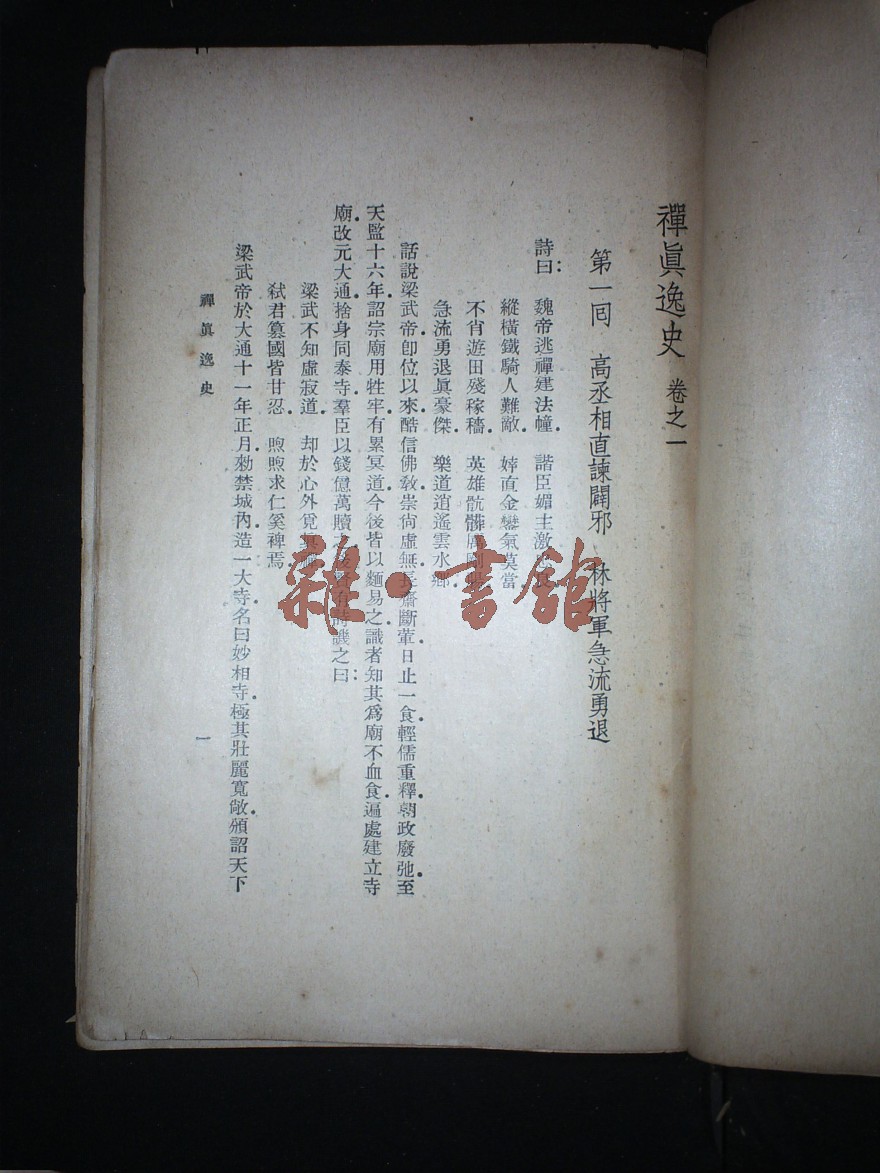 禪眞逸史 卷之一
第一囘 高丞相直諫闢邪 林將軍急流勇退
詩曰：魏帝逃禪建法幢。 諧臣媚主激
縱橫鐵騎人難敵。 婞直金鑾氣莫當
不肖遊田殘稼穡。 英雄骯髒
急流勇退眞豪傑。 樂道逍遙雲水鄉。
話說梁武帝卽位以來酷信佛敎。崇尙虛無長齋斷葷。日止一食。輕儒重釋。朝政廢弛。至
天監十六年。詔宗廟用牲牢。有累冥道。今後皆以麵易之。識者知其爲廟不血食。遍處建立寺
廟。改元大通。捨身同泰寺。羣臣以錢億萬贖 詩譏之曰：
梁武不知虛寂道。 却於心外覓
弒君篡國皆甘忍。 煦煦求仁奚裨焉。
梁武帝於大通十一年正月。勅禁城內。造一大寺。名曰妙相寺。極其壯麗寬敞。頒詔天下
禪眞逸史
一
雜·書館